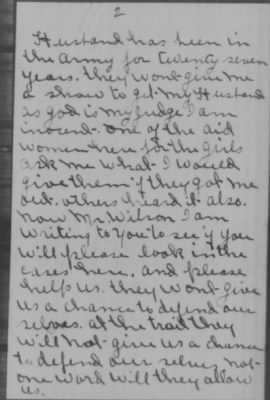 2
Husband has been in
the army for twenty seven
years. they wont give me
a show to get my Husband
as god is my Judge I am
inocent. one of the aid
women here for the girls
ask me what I would
give them if they got me
out. others heard it also.
now Mr. Wilson I am
writing to you to see if you
will please look in the
cases here. and please
help us. they wont give
us a chance to defend our
selves. at the trail they
will not give us a chance
to defend our selves not
one word will they allow
us.